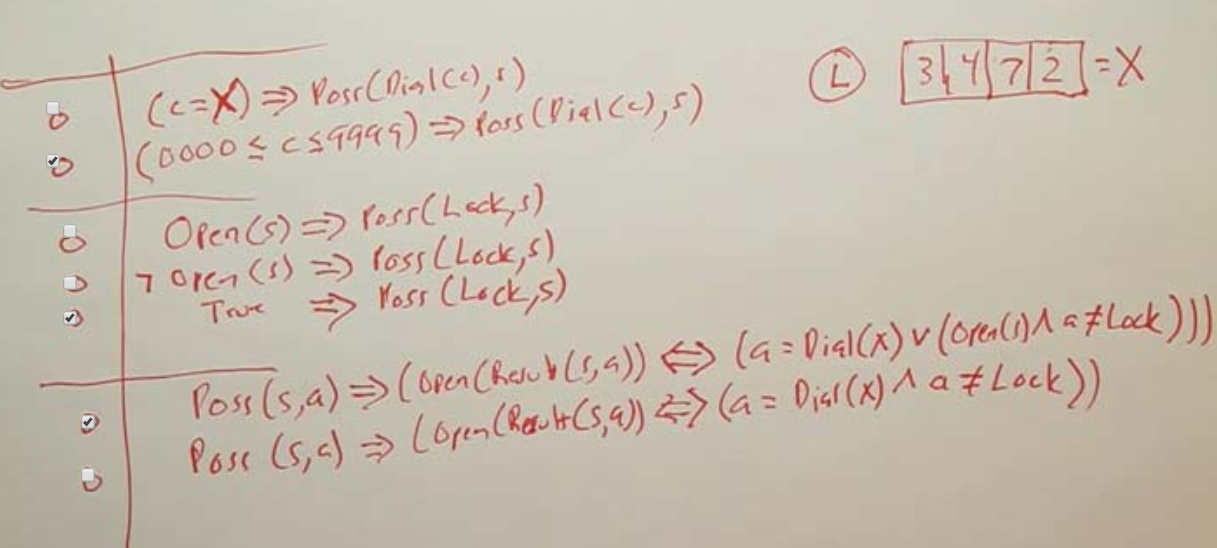 (c=X) ⇒ Poss(Dial(c),s)
(0000 ≤ c ≤ 9999) ⇒ Poss(Dial(c),s)
Open(s) ⇒ Poss(Lock,s)
¬ Open(s) ⇒ Poss(Lock,s)
True ⇒ Poss(Lock,s)
Poss(s,a) ⇒ (Open(Result(s,a)) ⇔ (a = Dial(X) ∨ (Open(s) ∧ a ≠ Lock)))
Poss(s,a) ⇒ (Open(Result(s,a)) ⇔ (a = Dial(X) ∧ a ≠ Lock))
L 3 4 7 2 = X